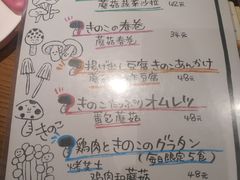 蘑菇蔬菜沙拉 42元
きのこの春巻
蘑菇春卷 34元
揚げ出し豆腐きのこあんかけ
蘑菇炸豆腐 48元
きのこたっぷりオムレツ
蛋包蘑菇 48元
鶏肉ときのこのグラタン
(毎日限定5食)
焗芝士
鶏肉和蘑菇 48元
きのこ